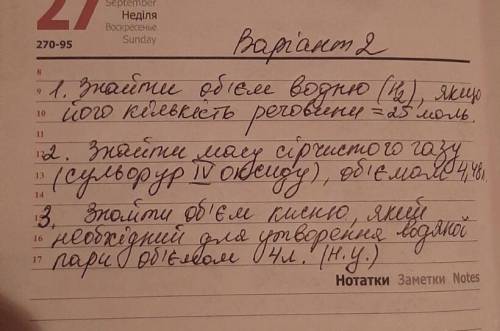 27
September
Неділя
Воскресенье
Sunday
270-95
Варіант 2
8
9 1. Знайти об'єм водню (H₂), якщо
10 його кількість речовини = 25 моль.
11
12 2. Знайти масу сірчистого газу
13 (сульфур IV оксиду), об'ємом 4,48л.
3. Знайти об'єм кисню, який
16 необхідний для утворення водяної
17 пари об'ємом 4л. (н.у.)
Нотатки Заметки Notes